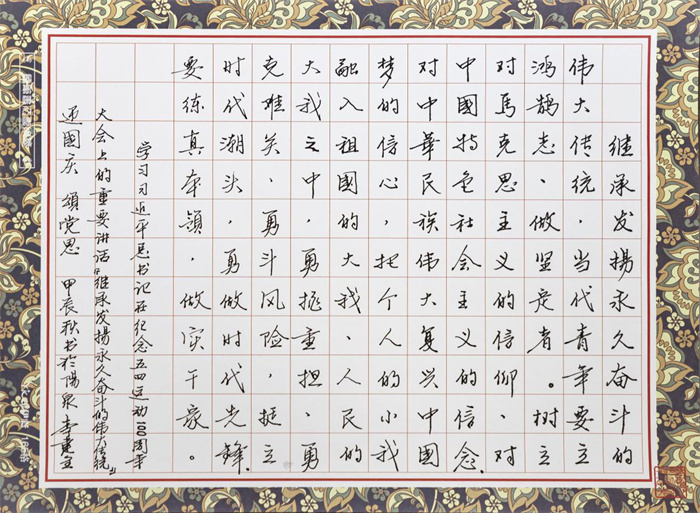 继承发揚永久奋斗的
伟大传统，当代青年要立
鸿鹄志、做坚定者。树立
对馬克思主义的信仰、对
中國特色社会主义的信念、
对中華民族伟大复兴中國
梦的信心，把个人的小我
融入祖國的大我、人民的
大我之中，勇挑重担、勇
克难关、勇斗风险，挺立
时代潮头，勇做时代先锋、
要练真本领，做实干家。
学习习近平总书记在纪念五四运动100周年
大会上的重要讲话《继承发揚永久奋斗的伟大传统》
迎國庆 頌党恩 甲辰秋书於陽泉 李建立